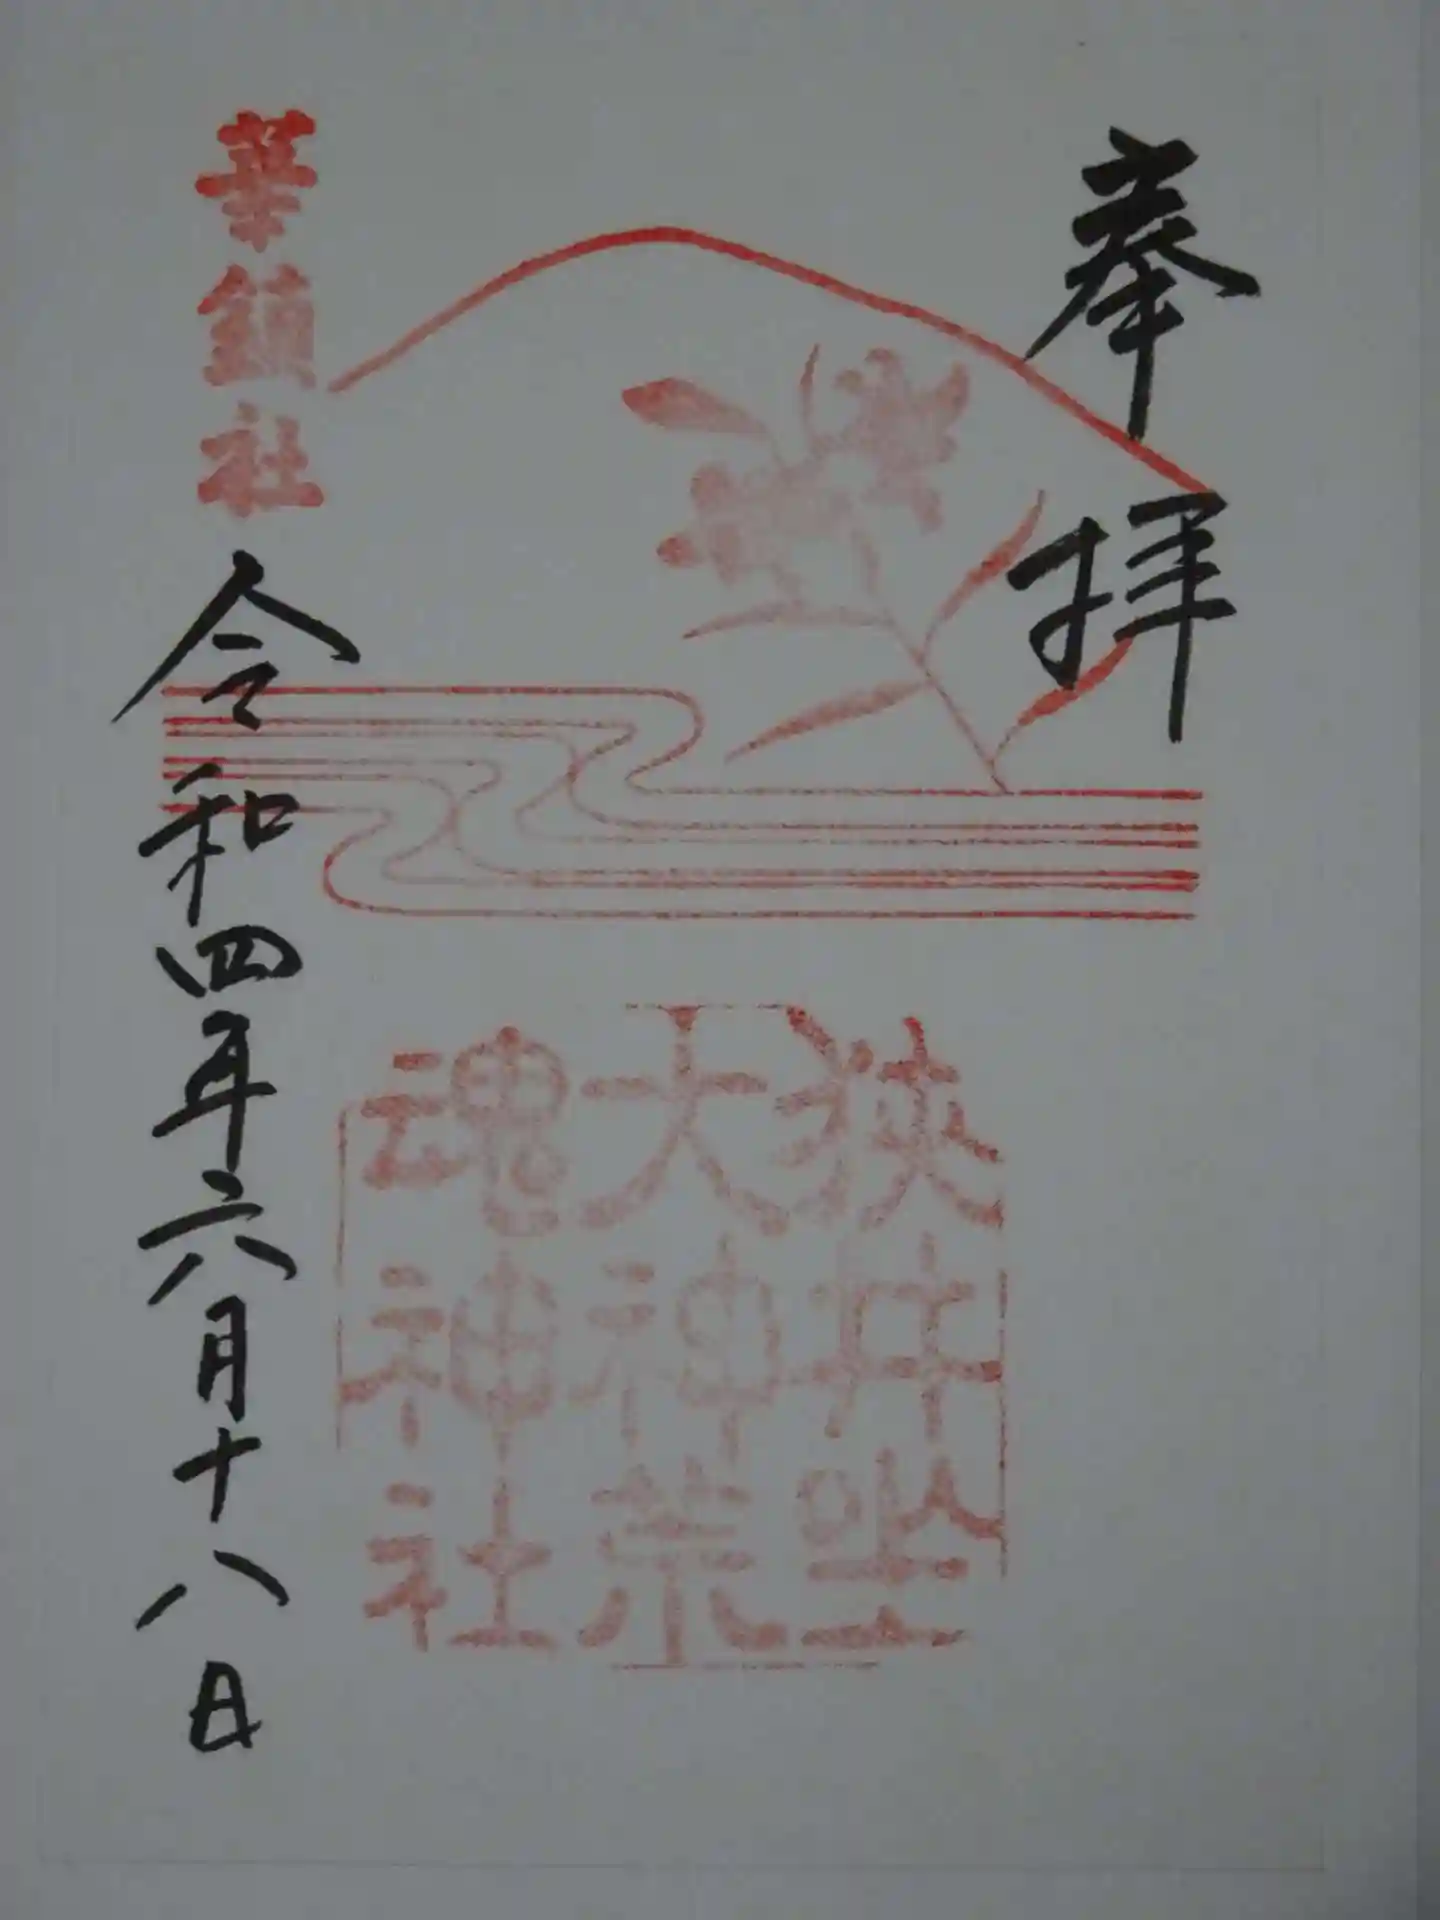 奉拝
狭井坐
大神荒
魂神社
華鎮社
令和四年六月十八日